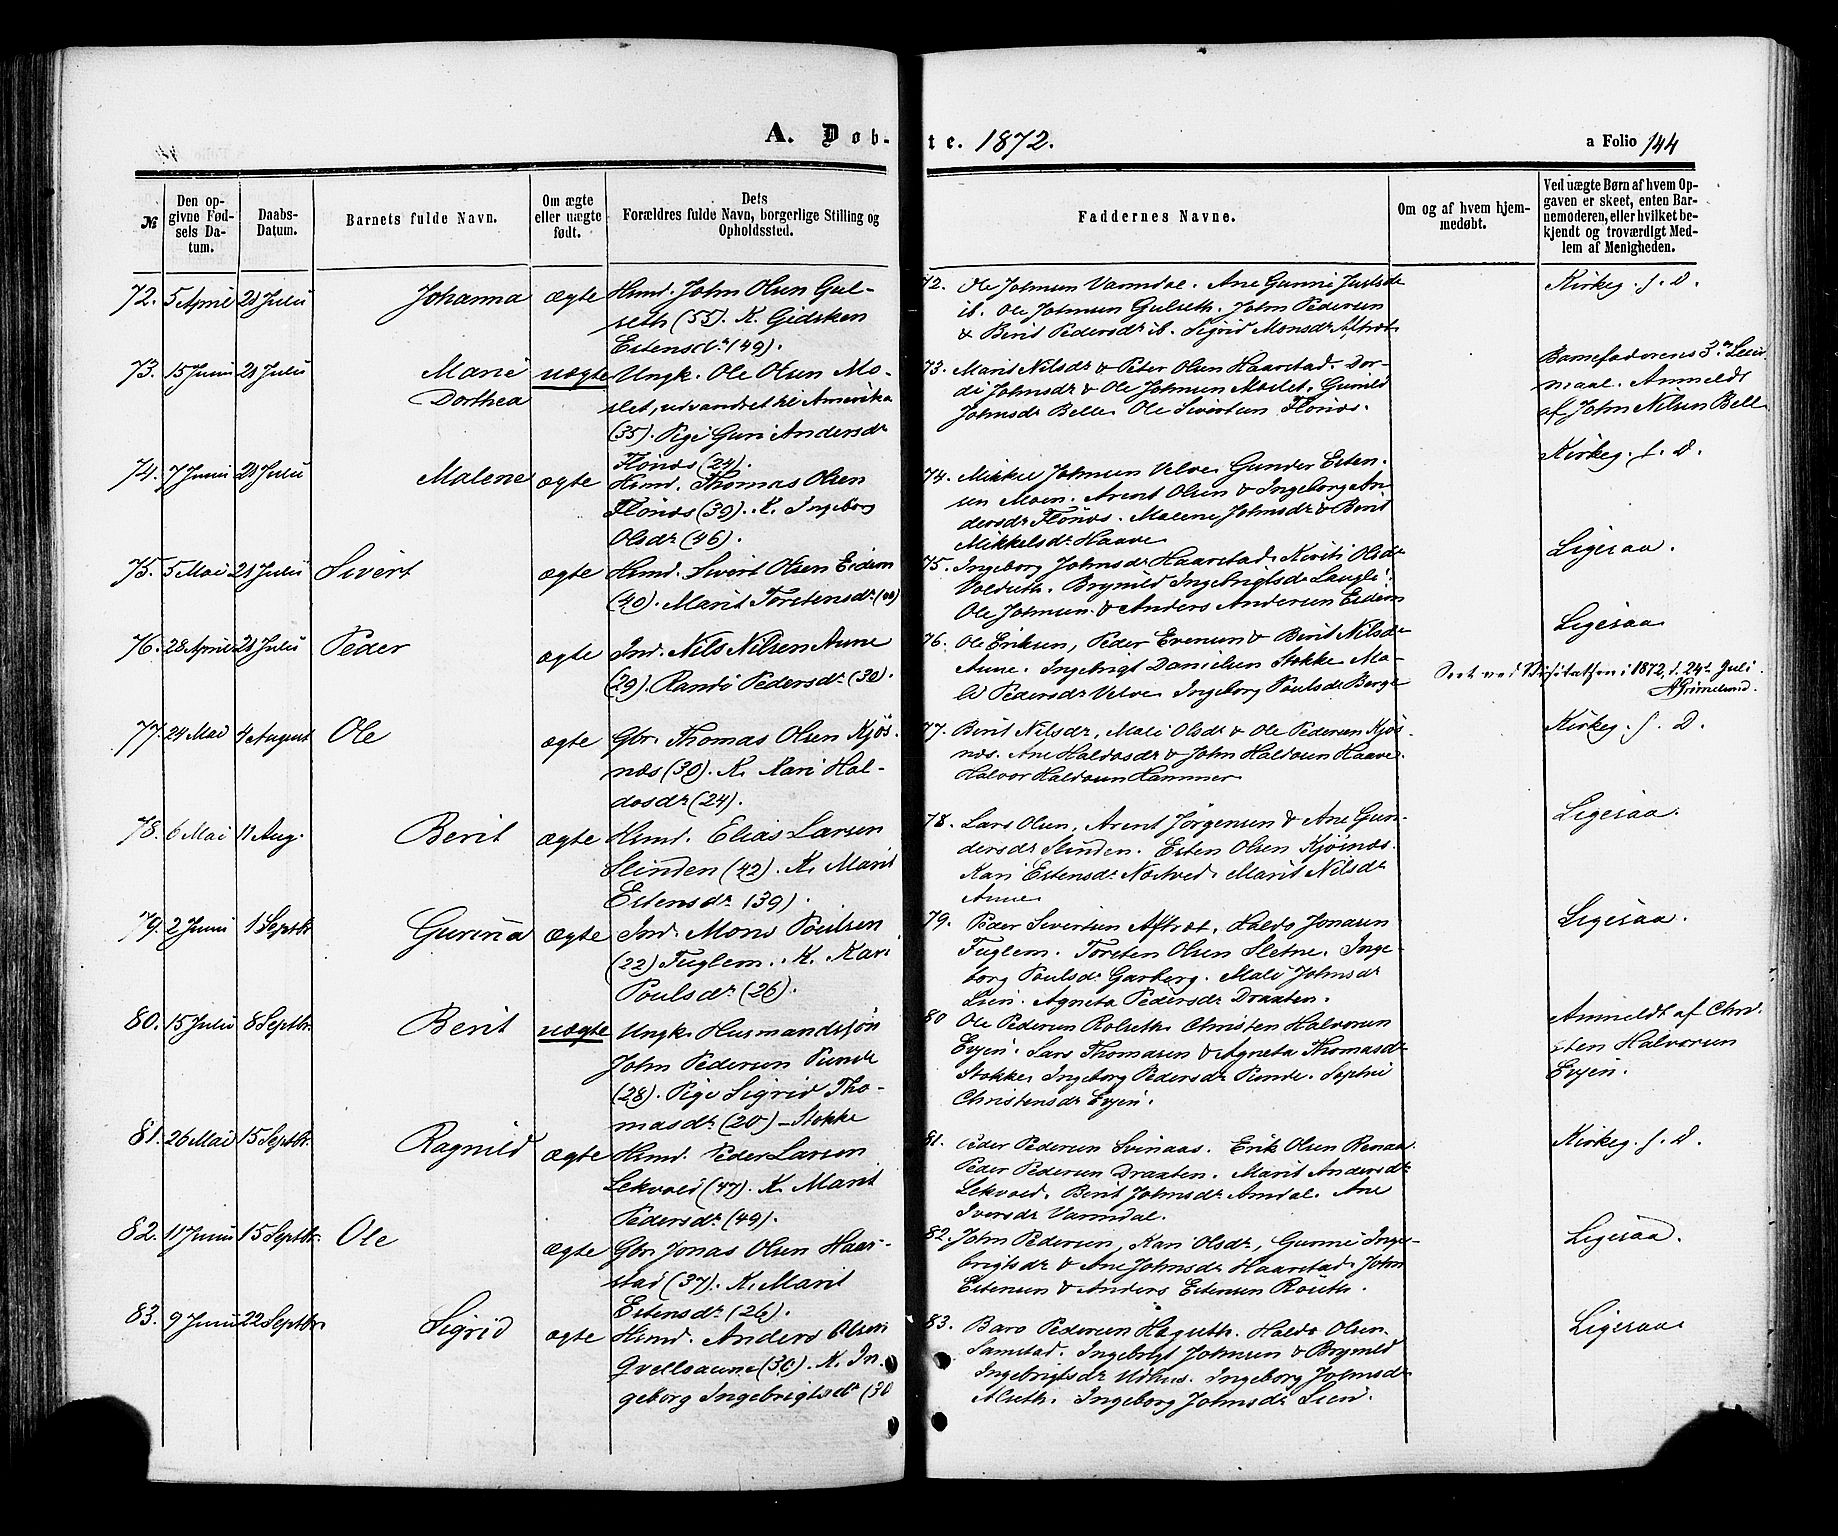 A. Døb-
te. 1872.
a Folio 144
№
Den op-
givne Fød-
sels Da-
tum.
Daabs-
Datum.
Barnets fulde Navn.
Om ægte
eller uægte
født.
Dets
Forældres fulde Navn, borgerlige Stilling og
Opholdssted.
Faddernes Navne.
Om og af hvem hjem-
medøbt.
Ved uægte Børn af hvem Op-
gaven er skeet, enten Bar-
nemoderen, eller hvilket be-
kjendt og troværdigt Med-
lem af Menigheden.
72. 5 April 21 Julii Johanna ægte Hmd. John Olsen Gul-
seth (55). K. Gidsken
Estensdr. (49).
72. Ole Johnsen Vamdal. Ane Gunni
ib. Ole Johnsen Gulseth. John Pedersen
& Berit Pedersdr ib. Sigrid Monsdr Aftret
Kirkeg. s. D.
73. 15 Junii 21 Julii Marie
Dorthea
uægte Ungk. Ole Olsen Mo-
slet, udvandret til Amerika
(35). Pige Guri Andersdr
Flönæs (24).
73. Marit Nilsdr & Peter Olsen Haarstad. Dor-
di Johnsdr & Ole Johnsen Moslet. Gunild
Johnsdr Belle. Ole Sivertsen Flönæs.
Barnefaderens 3die Leier-
maal. Anmeldt
af John Nilsen Bell
74. 7 Junii 21 Julii Malene ægte Hsmd. Thomas Olsen
Flönæs (39). K. Ingeborg
Olsdr (46).
74. Mikkel Johnsen Velve. Gunder Esten-
sen Moen. Arent Olsen & Ingeborg An-
dersdr Flönæs. Malene Johnsdr & Berit
Mikkelsdr Haave
Kirkeg. s. D.
75. 5 Mai 21 Julii Sivert ægte Hsmd. Sivert Olsen Eidem
(40). Marit Torstensdr. (40)
75. Ingeborg Johnsdr Haarstad. Kirsti Olsdr
Volseth. Brynild Ingebrigtsdr Laugli.
Ole Johnsen & Anders Andersen Eidem
Ligesaa.
76. 28 April 21 Julii Peder ægte Ind. Nils Nilsen Aune
(29). Randi Pedersdr. (30).
76. Ole Eriksen, Peder Evensen & Berit Nilsdr
Aune. Ingebrigt Danielsen Stokke. Ma-
li Pedersdr Velve. Ingeborg Poulsdr Berge
Ligesaa
Seet ved Visitatsen i 1872, d. 24de Juli.
AGrimelund.
77. 24 Mai 4 August Ole ægte Gbr. Thomas Olsen Kjös-
næs (30). K. Kari Hal-
dosdr (24).
77. Berit Nilsdr, Mali Olsdr & Ole Pedersen Kjös-
næs. Ane Haldosdr & John Haldosen Haave.
Halvor Haldosen Hammer
Kirkeg. s. D.
78. 6 Mai 11 Aug. Berit ægte Hsmd. Elias Larsen
Slinden (42). K. Marit
Estensdr. (39).
78. Lars Olsen, Arent Jörgensen & Ane Gun-
dersdr Slinden. Esten Olsen Kjösnæs.
Kari Estensdr Næstved. Marit Nilsdr
Aune
Ligesaa.
79. 2 Junii 1 Septbr Gurina ægte Ind. Mons Poulsen
(22) Fuglem. K. Kari
Poulsdr. (26).
79. Peder Sivertsen Aftret. Haldo Jonasen
Fuglem. Torsten Olsen Sletne. Inge-
borg Poulsdr Garberg. Mali Johnsdr
Lien. Agneta Pedersdr Draxten.
Ligesaa.
80. 15 Julii 8 Septbr. Berit uægte Ungk. Husmandssön
John Pedersen Rende
(28). Pige Sigrid Tho-
masdr (20) – Stokke
80 Ole Pedersen Rolseth. Christen Halvorsen
Evjen. Lars Thomasen & Agneta Thomasdr
Stokke. Ingeborg Pedersdr Rende. Sophie
Christensdr Evjen.
Anmeldt af Chri-
sten Halvorsen
Evjen.
81. 26 Mai 15 Septbr. Ragnild ægte Hsmd. Peder Larsen
Lekvold (47). K. Marit
Pedersdr. (49).
81. Peder Pedersen Svinaas. Erik Olsen Renaae
Peder Pedersen Draxten. Marit Andersdr
Lekvold. Berit Johnsdr Amdal. Ane
Iversdr Vamdal.
Kirkeg. s. D.
82. 11 Junii 15 Septbr. Ole ægte Gbr Jonas Olsen Haar-
stad (37). K. Marit
Estensdr. (26).
82. John Pedersen, Kari Olsdr, Gunni Inge-
brigtsdr & Ane Johnsdr Haarstad. John
Estensen & Anders Estensen Röseth.
Ligesaa.
83. 9 Junii 22 Septbr. Sigrid ægte Hsmd. Anders Olsen
Qvellsaune (30). K. In-
geborg Ingebrigtsdr (30
83. Baro Pedersen Hagseth. Haldo Olsen
Samstad. Ingebrigt Johnsen & Brynild
Ingebrigtsdr Udhus. Ingeborg Johnsdr
Alseth. Ingeborg Johnsdr Lien.
Ligesaa